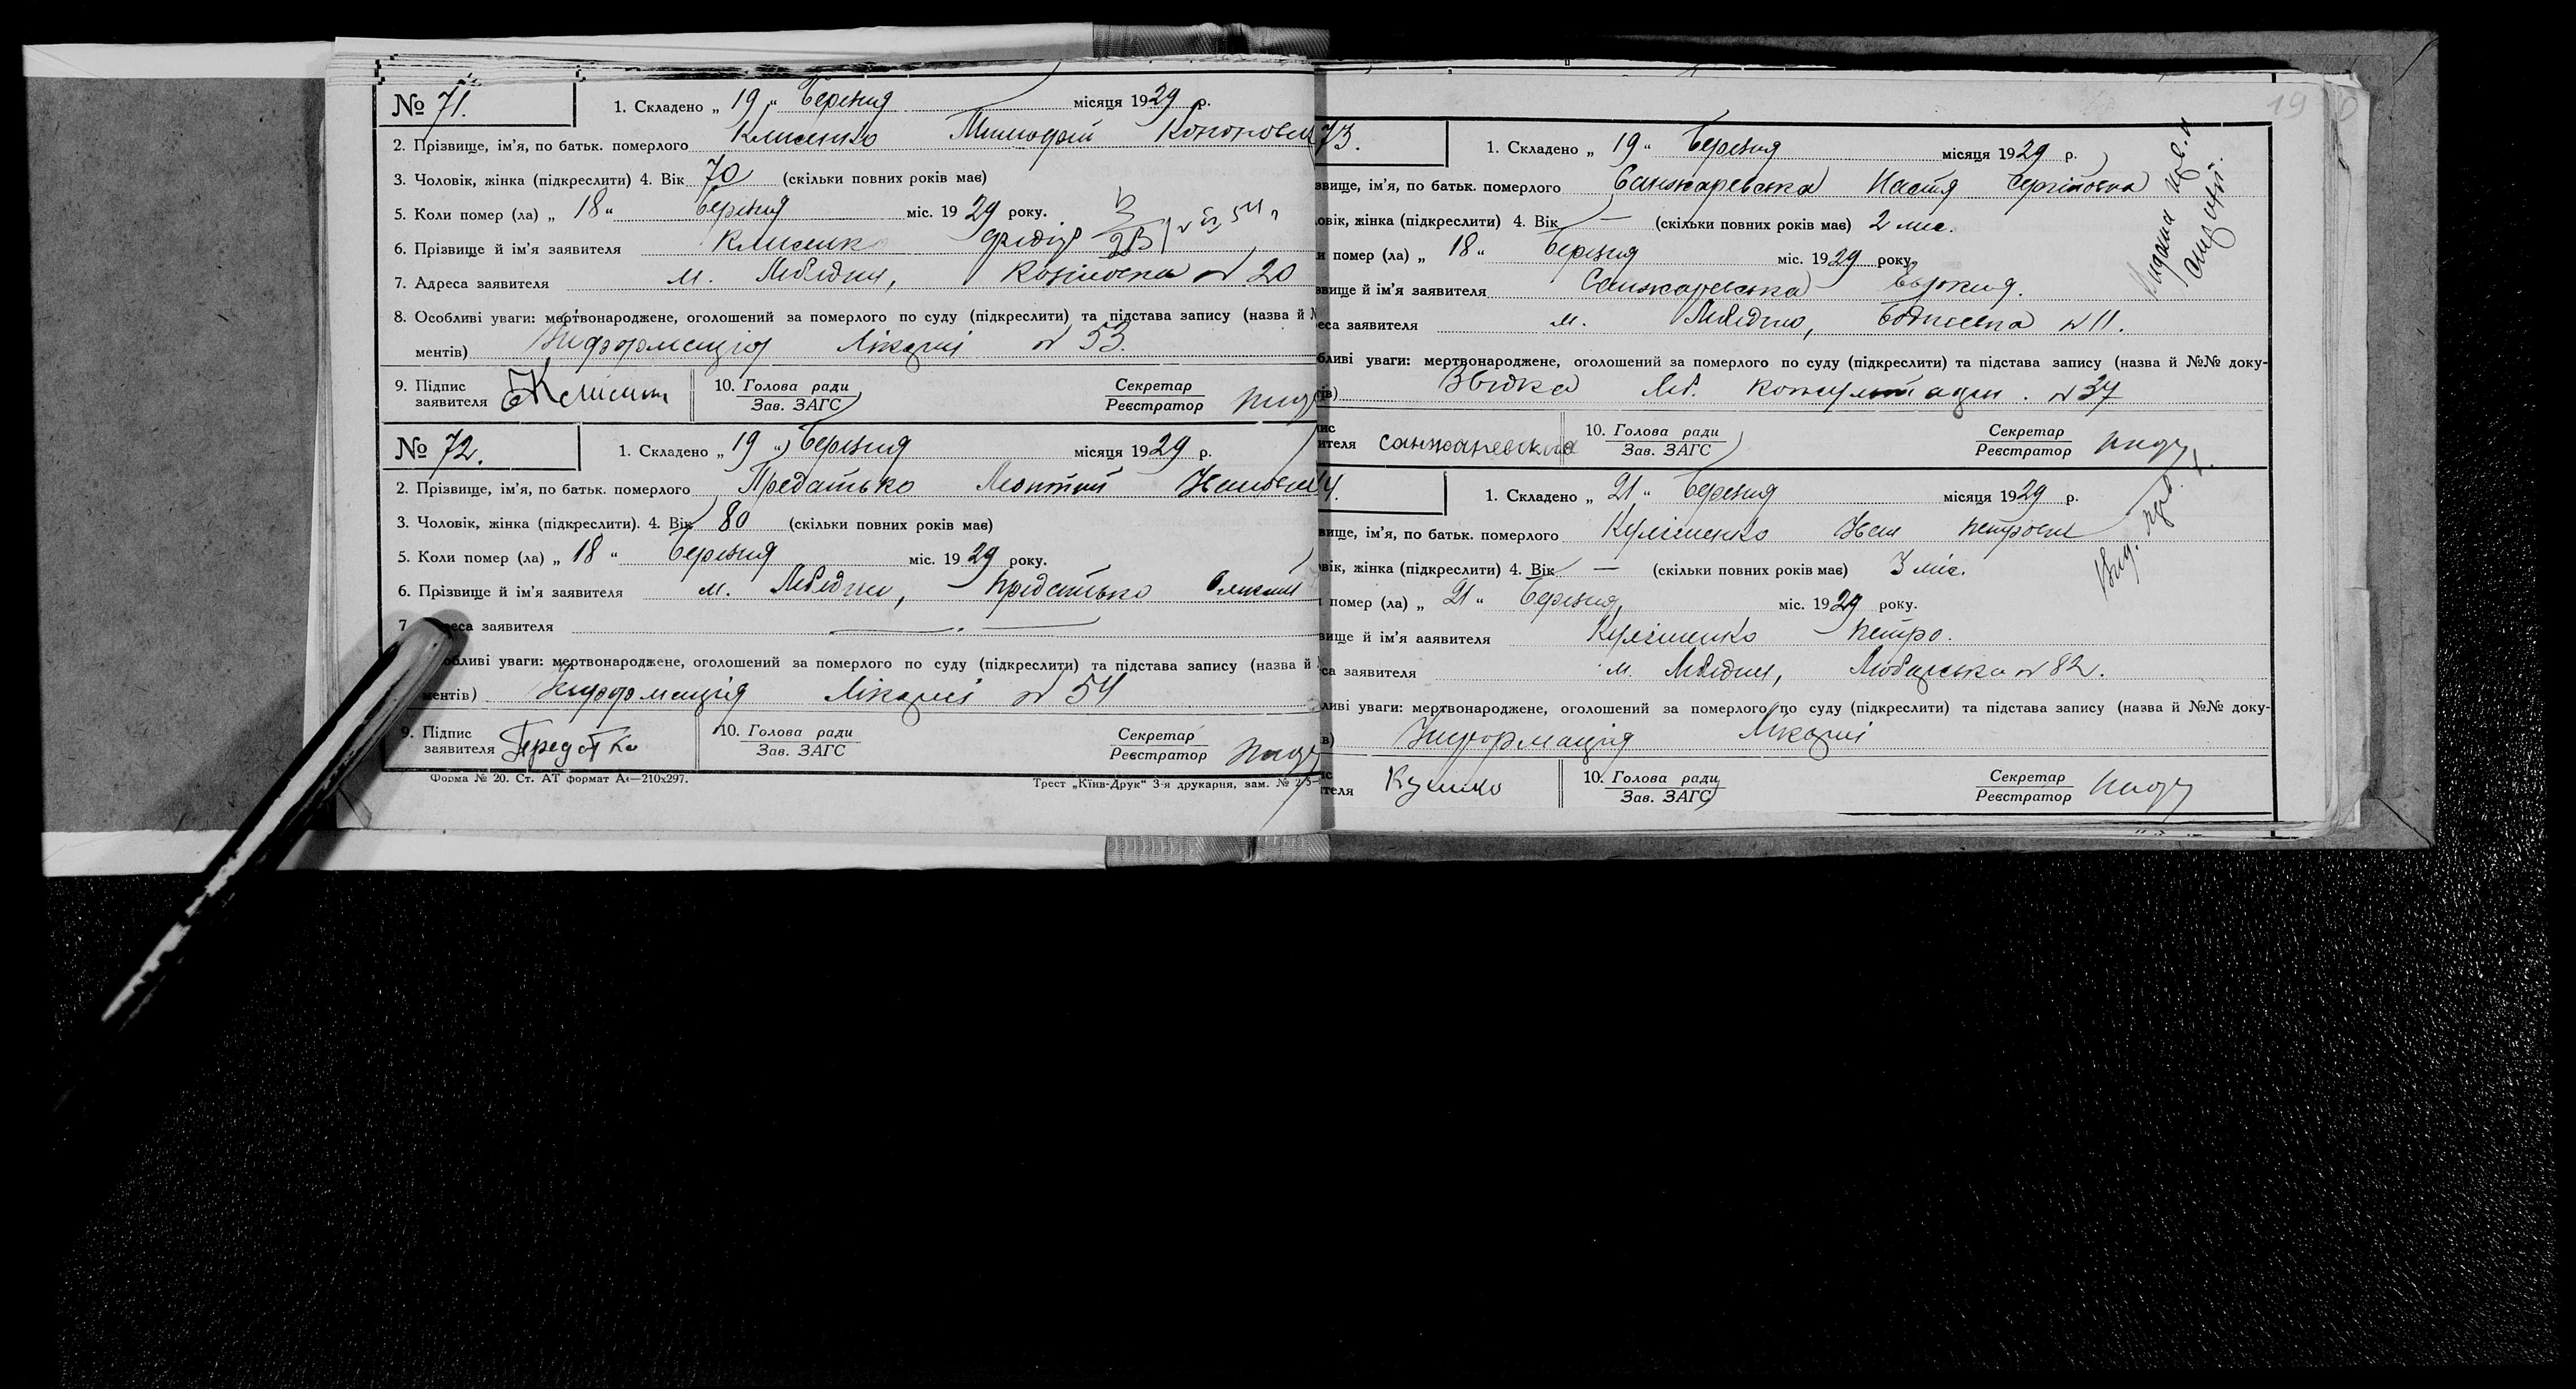 № 71.
1. Складено „ 19 „ березня місяця 1929 р.
2. Прізвище, ім'я, по батьк. померлого Клименко Тимофій Кононович
3. Чоловік, жінка (підкреслити) 4. Вік 70 (скільки повних років має)
5. Коли помер (ла) „ 18 „ березня міс. 1929 року.
6. Прізвище й ім'я заявителя Клименко
7. Адреса заявителя м. Лебедин, № 20
8. Особливі уваги: мертвонароджене, оголошений за померлого по суду (підкреслити) та підстава запису (назва й
ментів) Информация Лікарні № 53.
9. Підпис заявителя
10. Голова ради
Зав. ЗАГС
Секретар
Реєстратор
№ 72.
1. Складено „ 19 „ березня місяця 1929 р.
2. Прізвище, ім'я, по батьк. померлого Предатько Леонтій Іванович
3. Чоловік, жінка (підкреслити). 4. Вік 80 (скільки повних років має)
5. Коли помер (ла) „ 18 „ березня міс. 1929 року.
6. Прізвище й ім'я заявителя м. Лебедин, Предатько Олексій
7 реса заявителя — . —
обливі уваги: мертвонароджене, оголошений за померлого по суду (підкреслити) та підстава запису (назва й
ментів) Информація Лікарні № 54
9. Підпис заявителя
10. Голова ради
Зав. ЗАГС
Секретар
Реєстратор
Форма № 20. Ст. АТ формат А4—210х297.
Трест „Київ-Друк" 3-я друкарня, зам. №
19
73.
1. Складено „ 19 „ березня місяця 1929 р.
звище, ім'я, по батьк. померлого Санжаревська Настя Сергіївна
овік, жінка (підкреслити) 4. Вік — (скільки повних років має) 2 міс.
и помер (ла) „ 18 „ березня міс. 1929 року
звище й ім'я заявителя Санжаревська Євдокия.
еса заявителя м. Лебедин, № 11.
бливі уваги: мертвонароджене, оголошений за померлого по суду (підкреслити) та підстава запису (назва й №№ доку-
тів) Звідка Леб. Консультации. № 37
пис
ителя Санжаревська
10. Голова ради
Зав. ЗАГС
Секретар
Реєстратор
4.
1. Складено „ 21 „ березня місяця 1929 р.
вище, ім'я, по батьк. померлого Кулішенко Іван Петрович
овік, жінка (підкреслити) 4. Вік — (скільки повних років має) 3 міс.
помер (ла) „ 21 „ березня, міс. 1929 року.
вище й ім'я аявителя Кулішенко Петро.
са заявителя м. Лебедин, № 82.
ливі уваги: мертвонароджене, оголошений за померлого по суду (підкреслити) та підстава запису (назва й №№ доку-
в) Информація Лікарні
ис
теля
10. Голова ради
Зав. ЗАГС
Секретар
Реєстратор